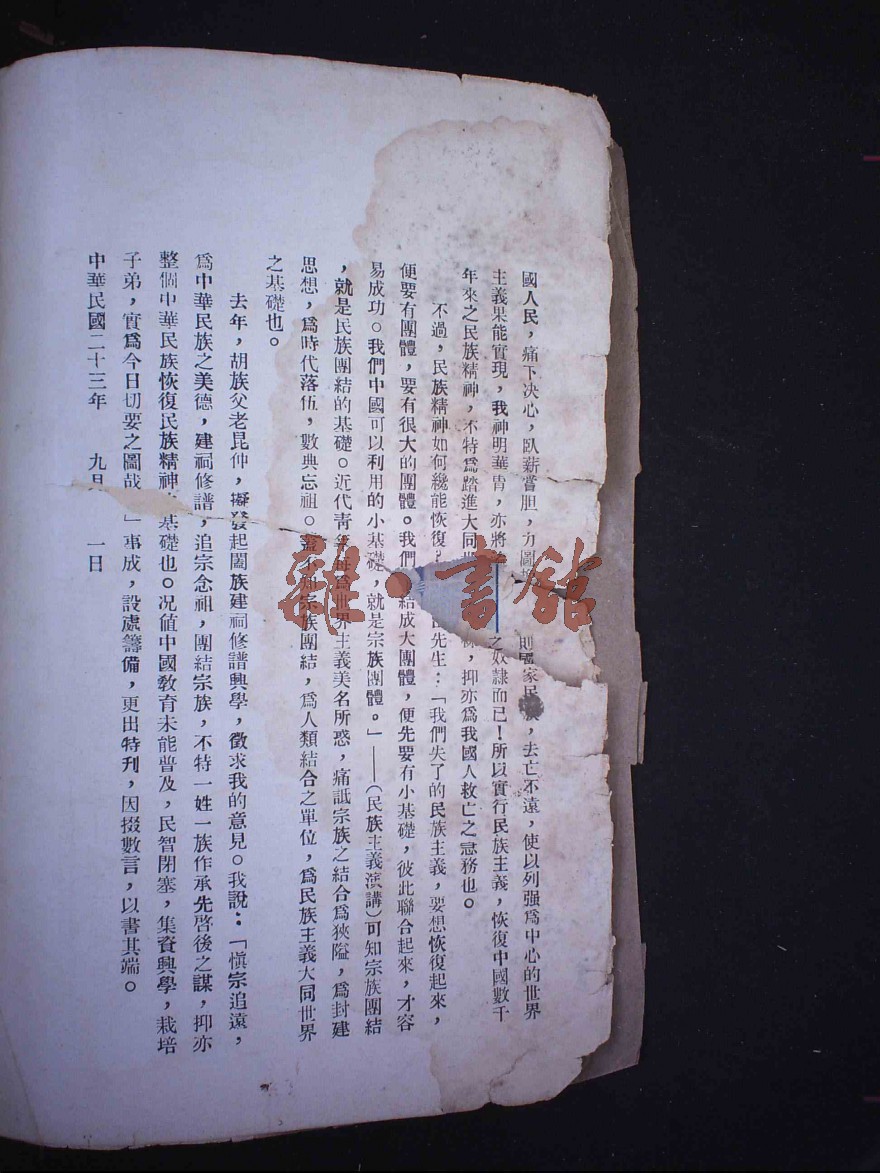 國人民，痛下决心，臥薪嘗胆，力圖 則國家民族，去亡不遠，使以列强爲中心的世界
主義果能實現，我神明華胄，亦將 之奴隷而已！所以實行民族主義，恢復中國數千
年來之民族精神，不特爲踏進大同 ，抑亦爲我國人救亡之急務也。
不過，民族精神如何纔能恢復 先生：「我們失了的民族主義，要想恢復起來，
便要有團體，要有很大的團體。我們 結成大團體，便先要有小基礎，彼此聯合起來，才容
易成功。我們中國可以利用的小基礎，就是宗族團體。」——（民族主義演講）可知宗族團結
，就是民族團結的基礎。近代靑年每爲世界主義美名所惑，痛詆宗族之結合爲狹隘，爲封建
思想，爲時代落伍，數典忘祖。蓋不知宗族團結，爲人類結合之單位，爲民族主義大同世界
之基礎也。
去年，胡族父老昆仲，擬發起闔族建祠修譜興學，徵求我的意見。我說：「愼宗追遠，
爲中華民族之美德，建祠修譜，追宗念祖，團結宗族，不特一姓一族作承先啓後之謀，抑亦
整個中華民族恢復民族精神 基礎也。况值中國敎育未能普及，民智閉塞，集資興學，栽培
子弟，實爲今日切要之圖哉」事成，設處籌備，更出特刊，因掇數言，以書其端。
中華民國二十三年 九月 一日
雜・書館